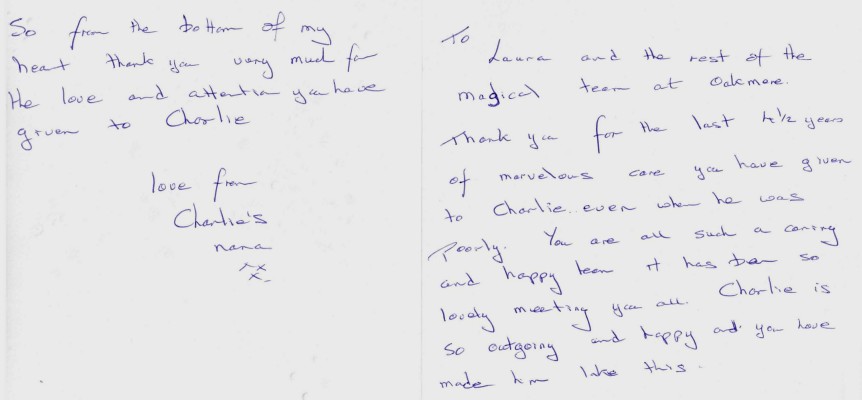 To
Laura and the rest of the
magical team at Oakmere.
Thank you for the last 4 1/2 years
of marvelous care you have given
to Charlie.. even when he was
Poorly. You are all such a caring
and happy team it has been so
lovely meeting you all. Charlie is
so outgoing and happy and you have
made him like this.
So from the bottom of my
heart thank you very much for
the love and attention you have
given to Charlie
love from
Charlie's
nana
xxx.